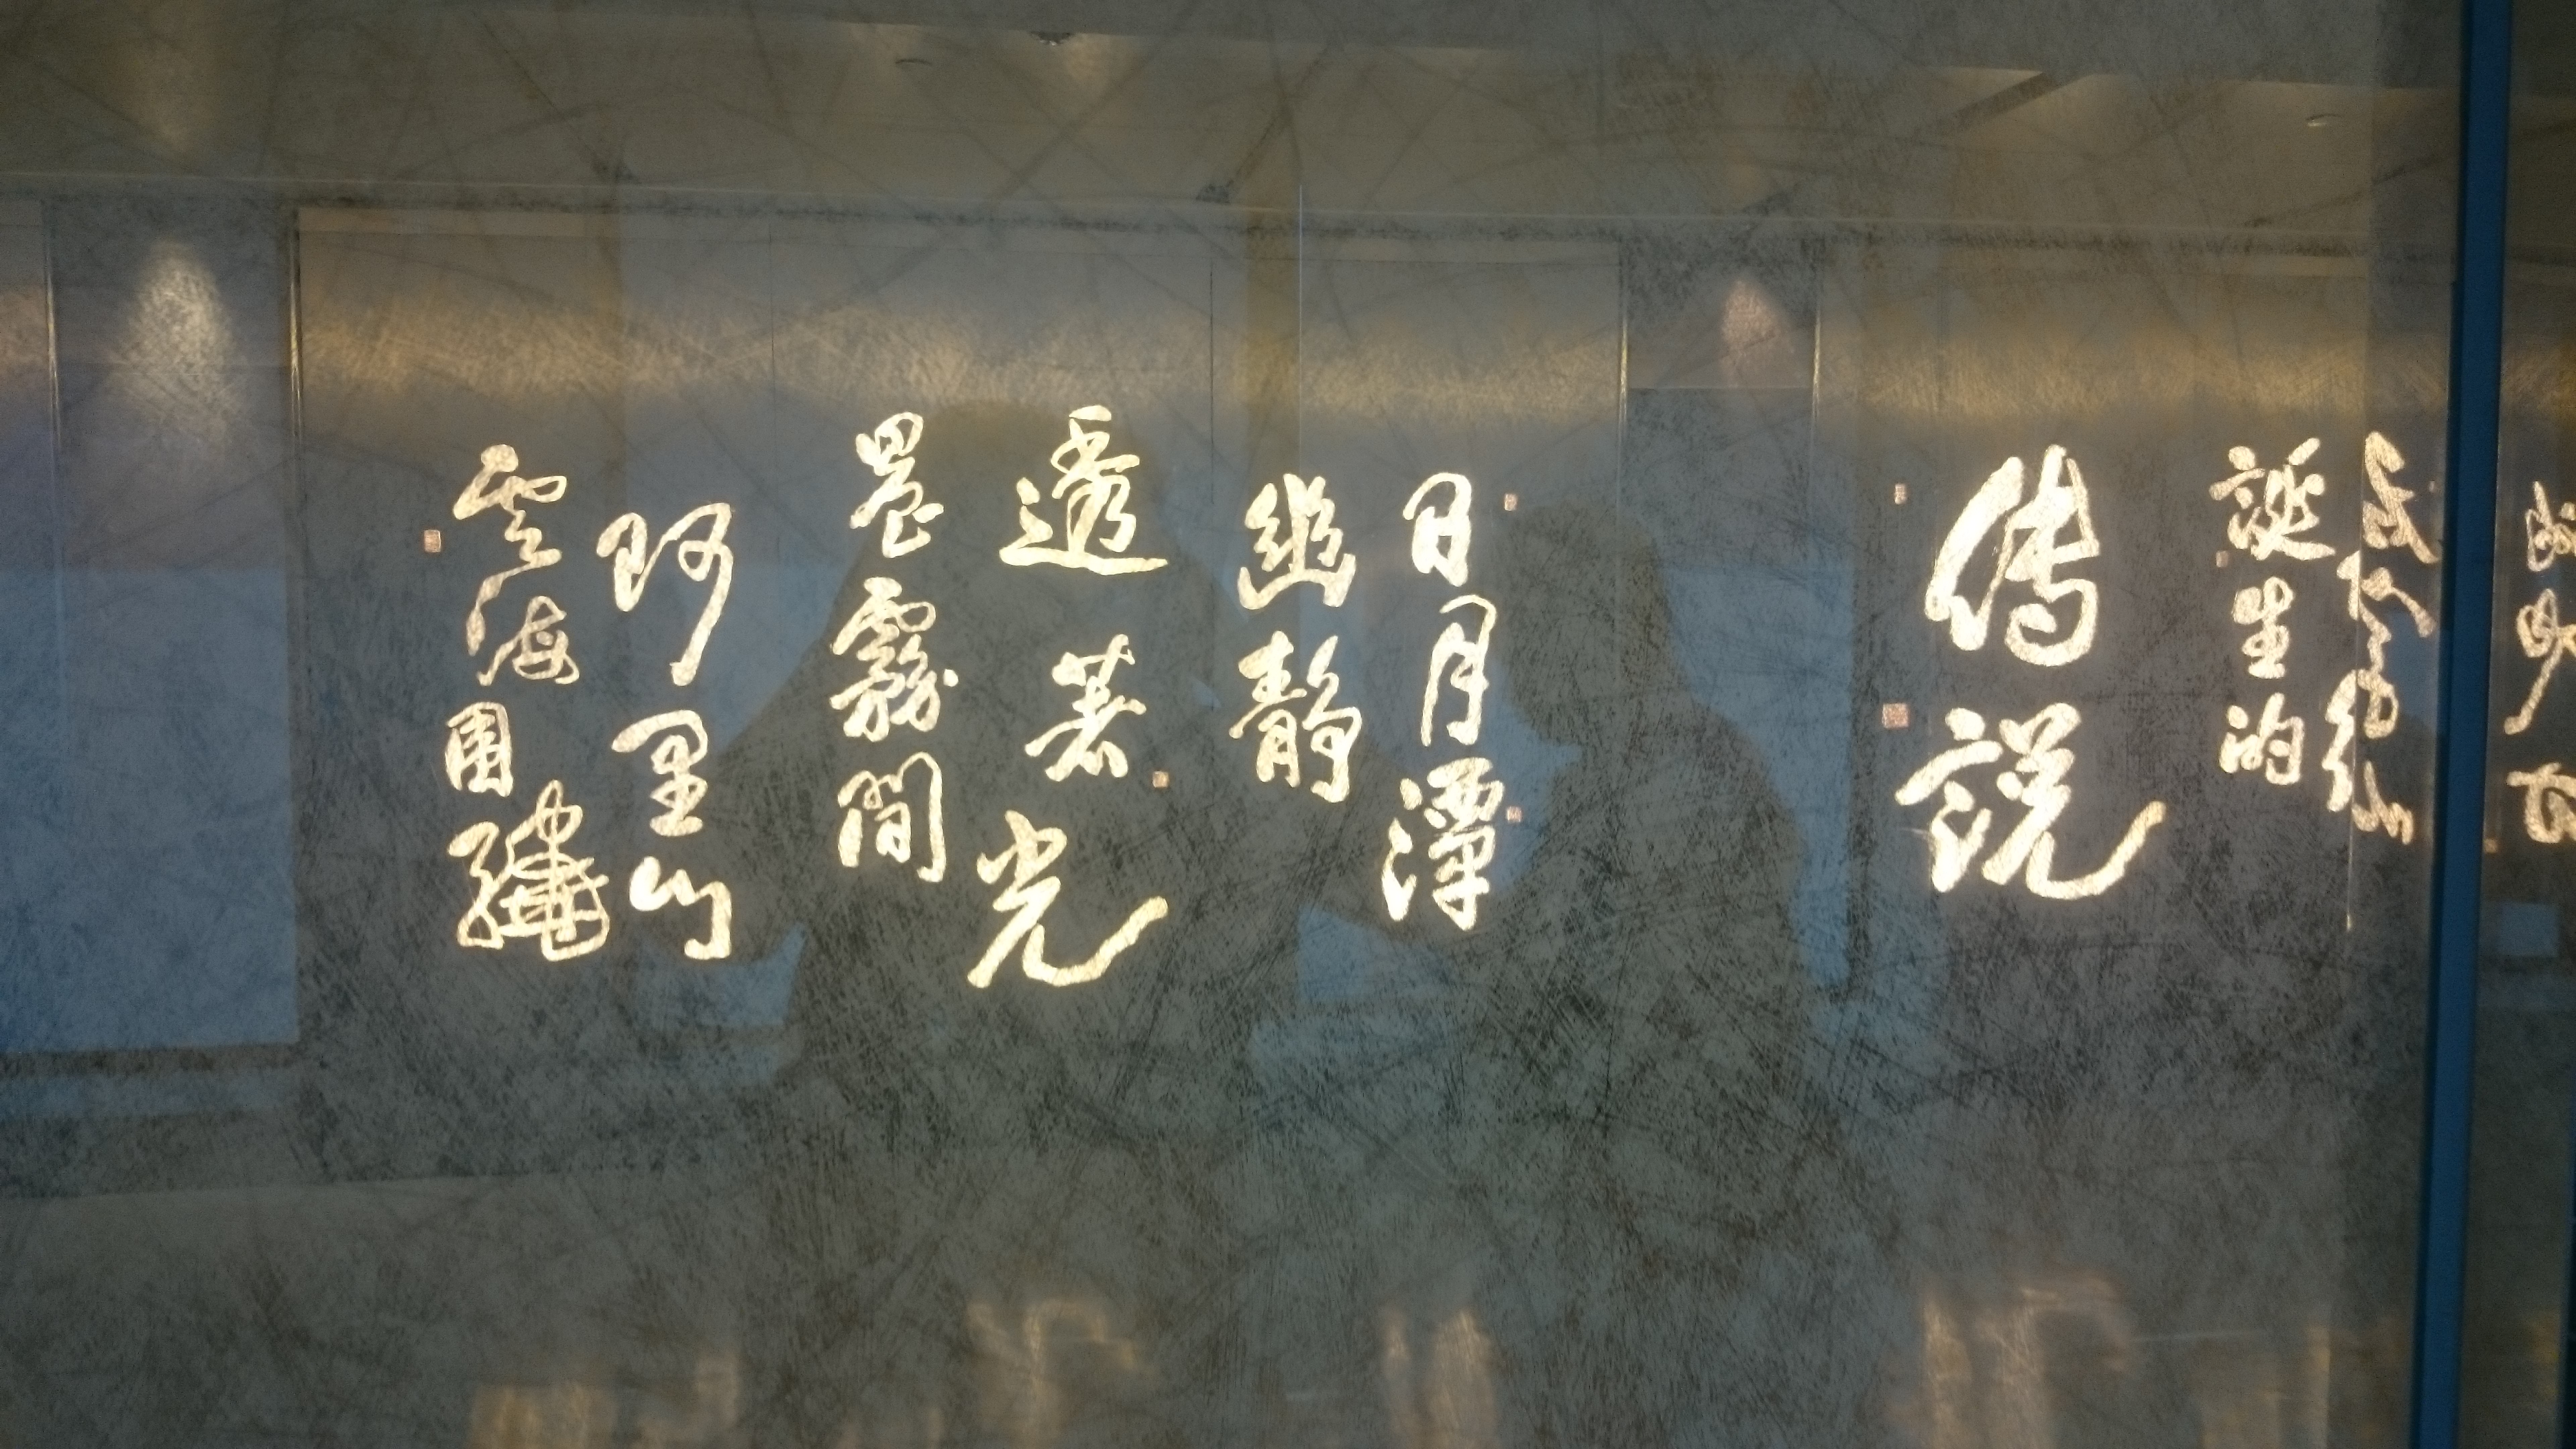 誕生的
傳說
日月潭
幽靜
透著光
晨霧間
阿里山
雲海圍繞